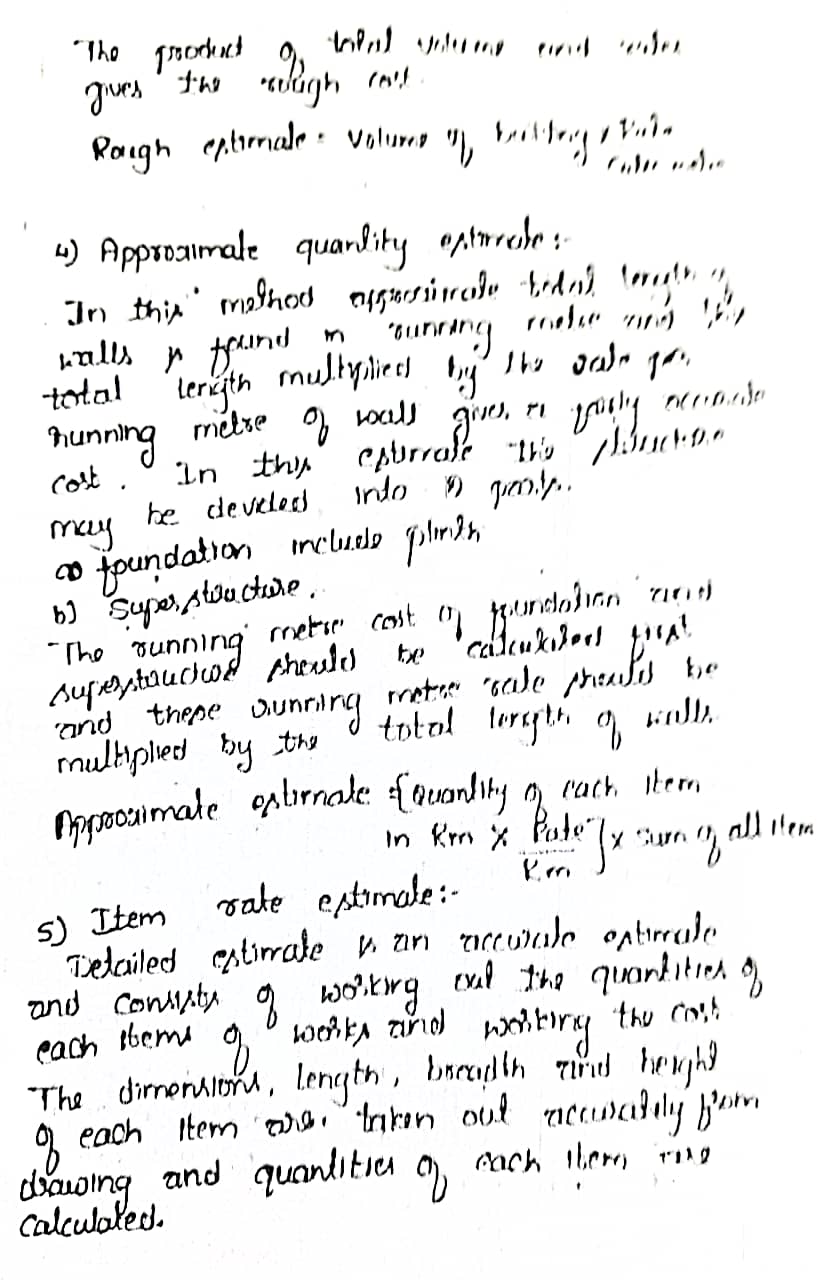 The product of total volume and rates
gives the rough cost.
Rough estimate = Volume of building x Rate
4) Approximate quantity estimate :-
In this method approximate total length of
walls is found in running metre and this
total length multiplied by the rate per
running metre of wall gives a fairly accurate
cost. In this estimate the structure
may be devided into 2 parts.
a) foundation include plinth
b) Superstructure.
The running metre cost of foundation and
superstructure should be calculated first
and these running metre rate should be
multiplied by the total length of walls.
Approximate estimate = {Quantity of each item
in Rm x Rate/Rm } x sum of all item
5) Item rate estimate :-
Detailed estimate is an accurate estimate
and consists of working out the quantities of
each items of works and working the cost
The dimensions, length, breadth and height
of each item are taken out accurately from
drawing and quantities of each item are
calculated.